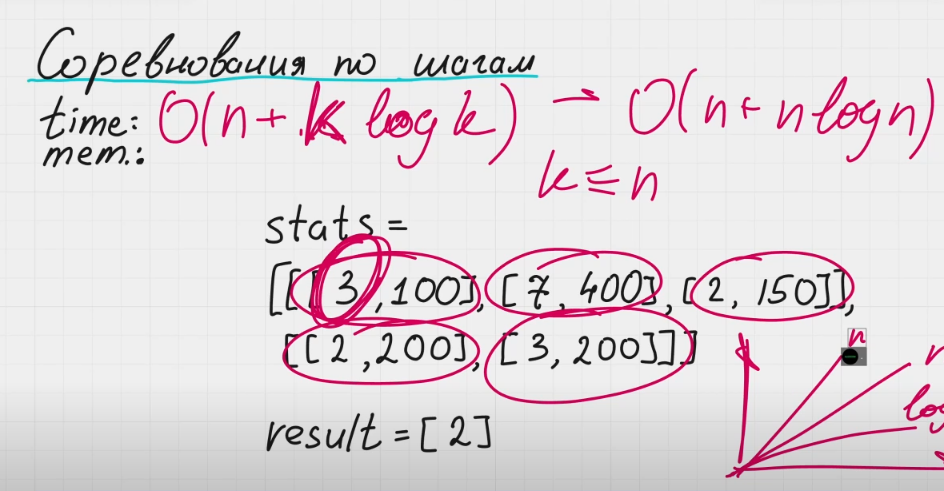 Соревнования по шагам
time: O(n + k log k) → O(n + n log n)
mem.:
k ≤ n
stats =
[[[3,100], [7,400], [2,150]],
[[2,200], [3,200]]]
n
result = [2]